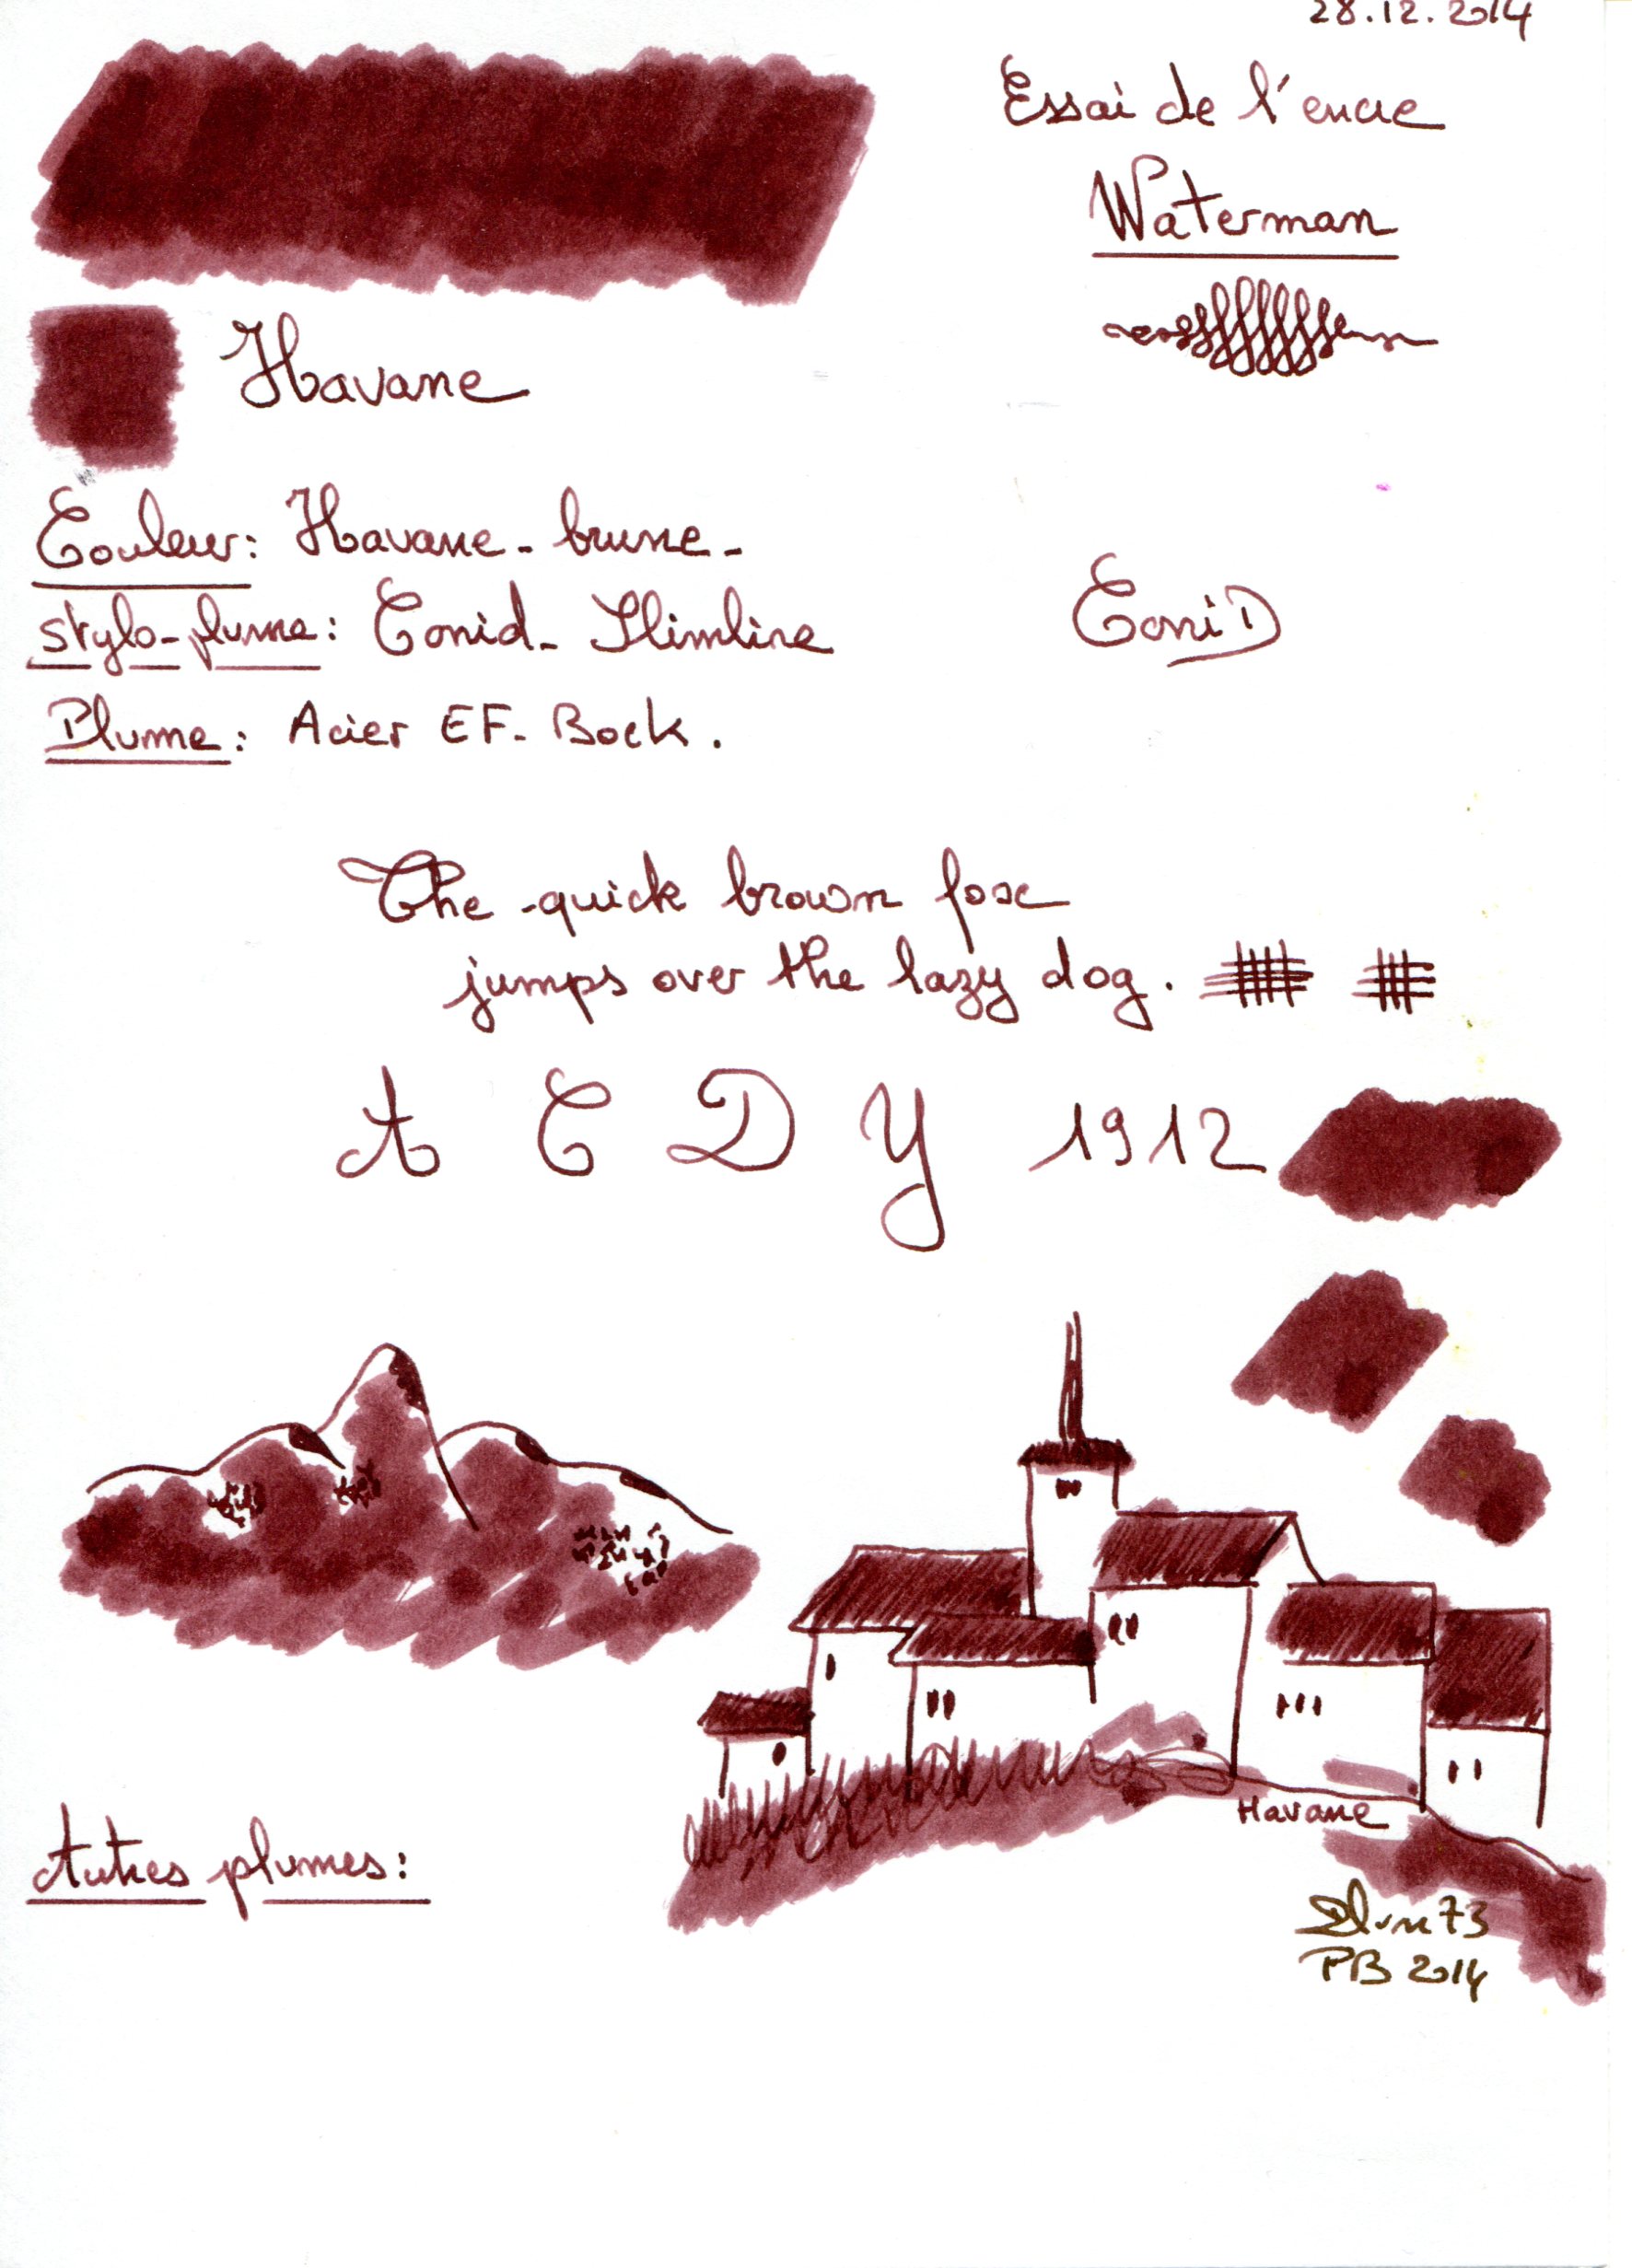 28.12.2014
Essai de l'encre
Waterman
Havane
Couleur: Havane - brune -
stylo-plume: Conid - Slimline
ConiD
Plume: Acier EF - Bock.
The quick brown fox
jumps over the lazy dog.
A C D Y 1912
Havane
Autres plumes:
PB 2014